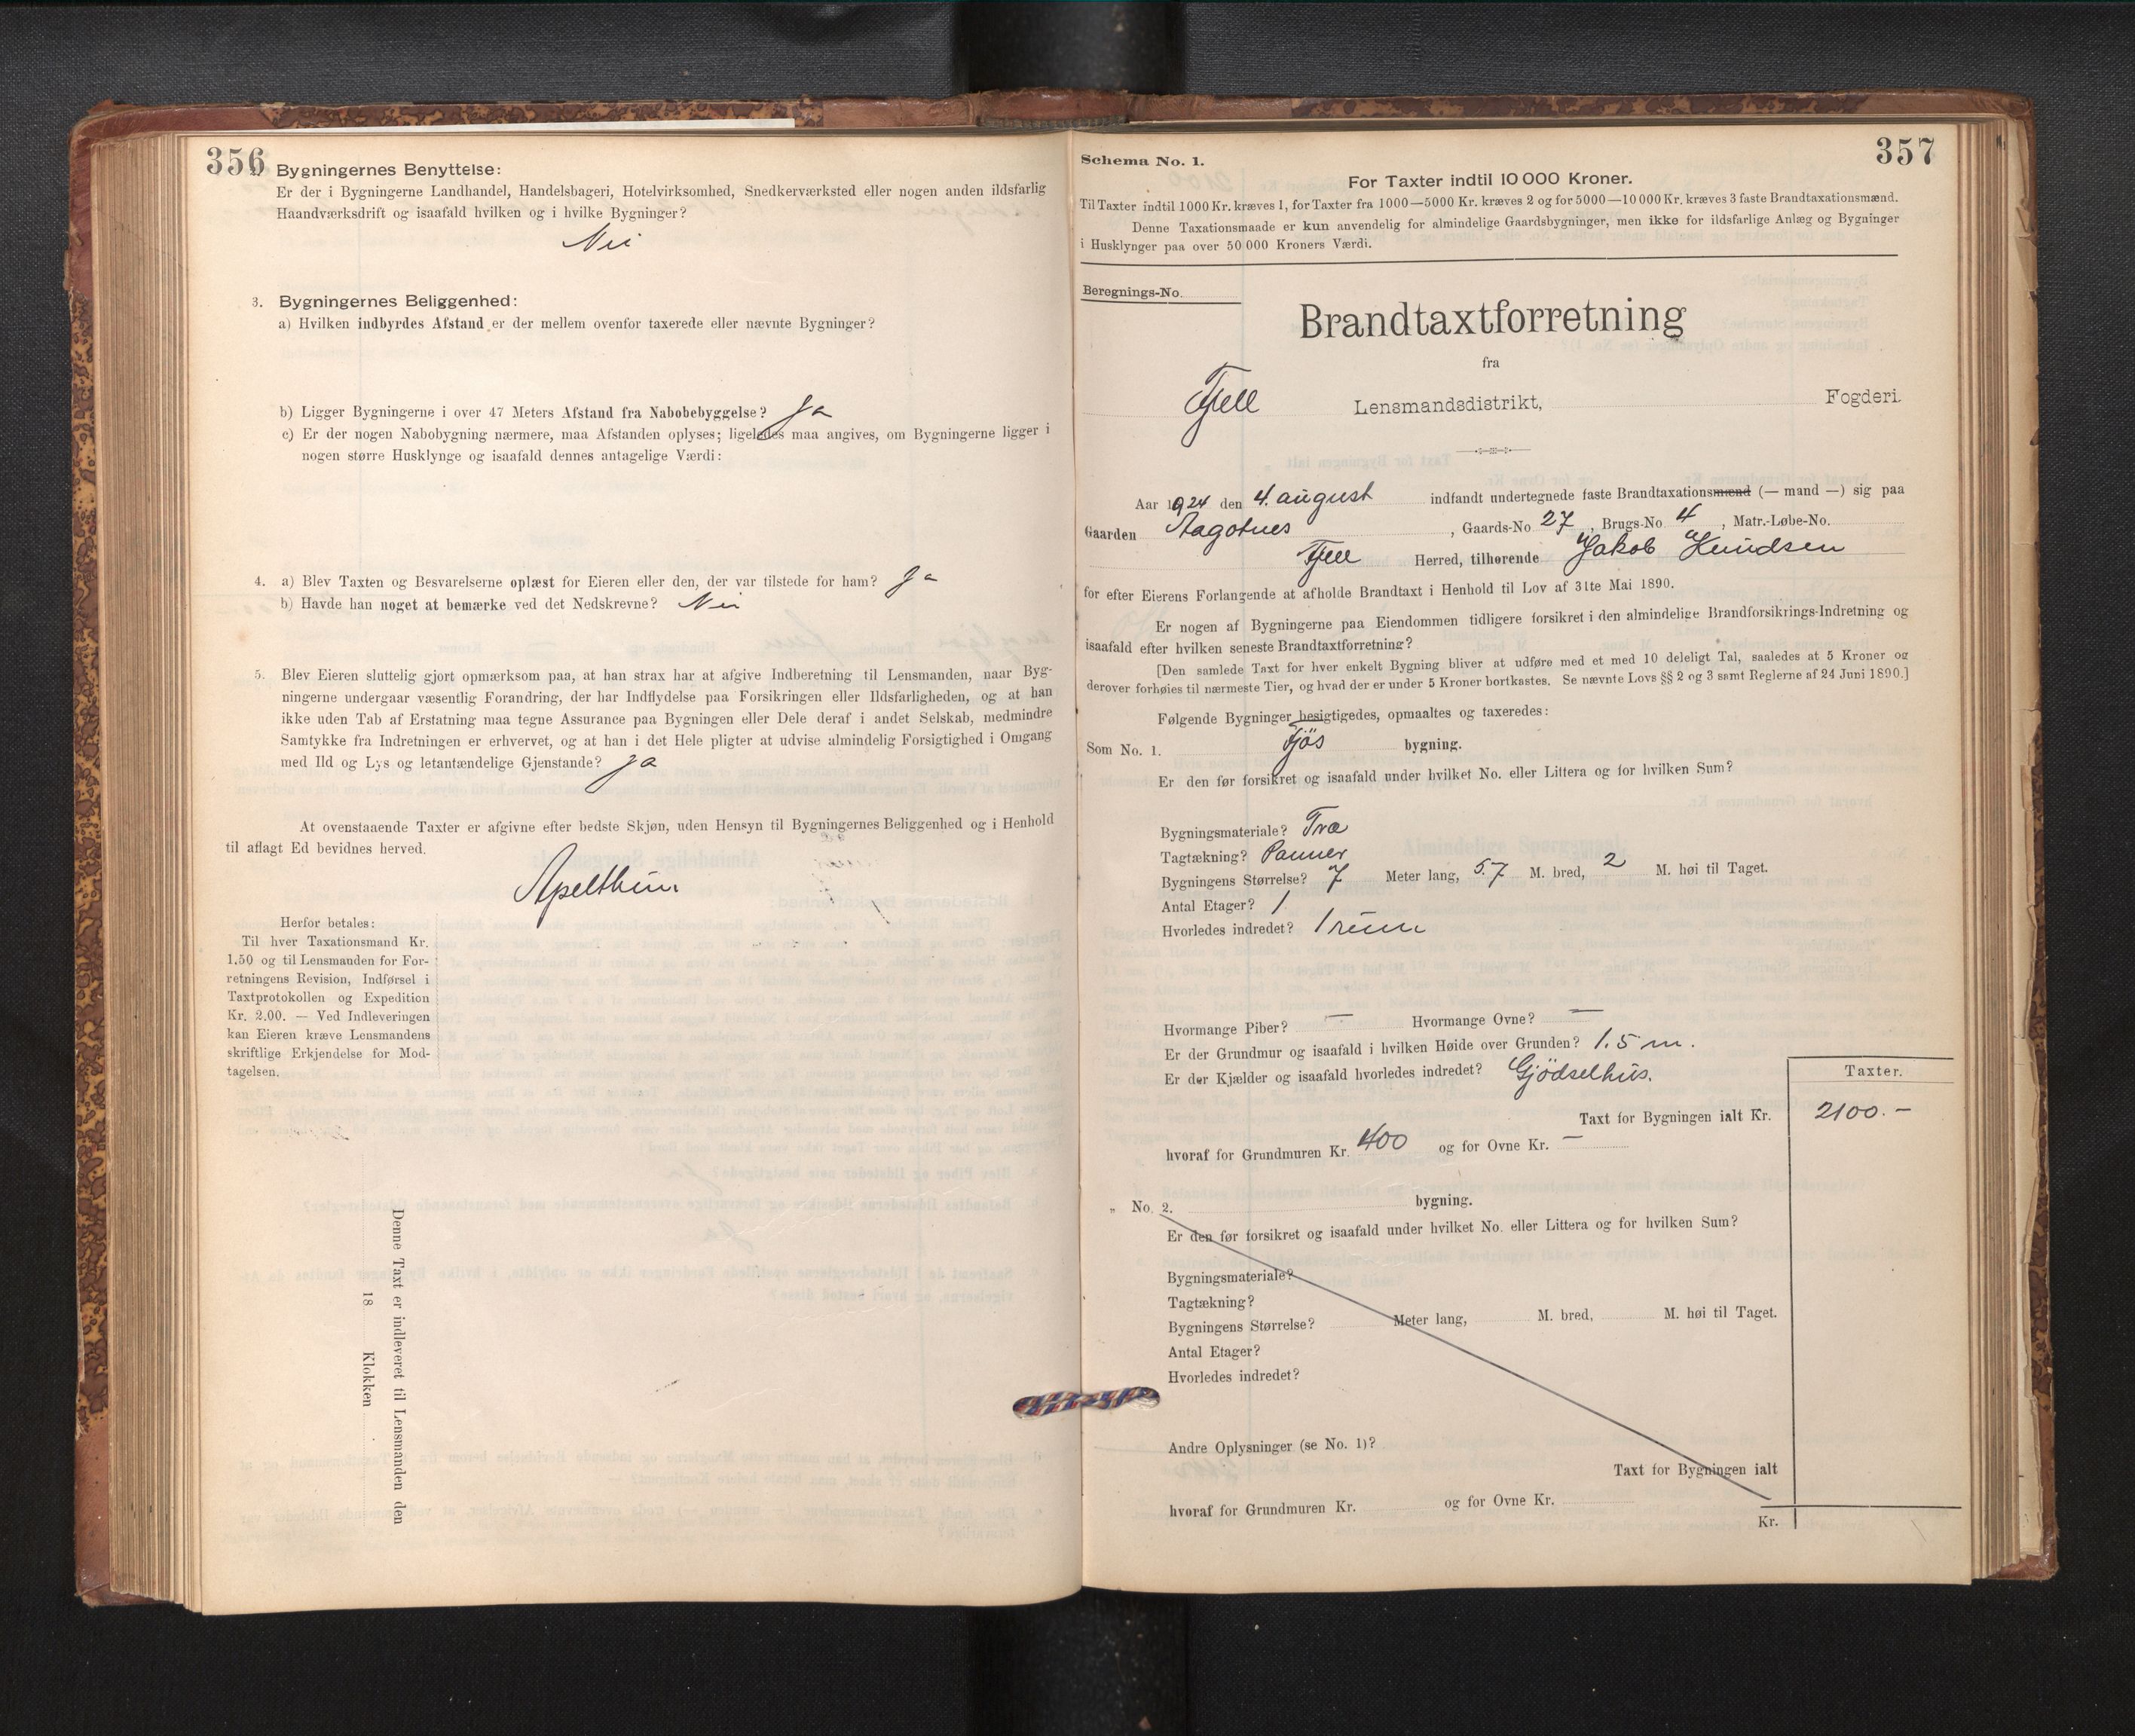 356
2. Bygningernes Benyttelse:
Er der i Bygningerne Landhandel, Handelsbageri, Hotelvirksomhed, Snedkerværksted eller nogen anden ildsfarlig
Haandværksdrift og isaafald hvilken og i hvilke Bygninger?
Nei
3. Bygningernes Beliggenhed:
a) Hvilken indbyrdes Afstand er der mellem ovenfor taxerede eller nævnte Bygninger?
b) Ligger Bygningerne i over 47 Meters Afstand fra Nabobebyggelse? Ja
c) Er der nogen Nabobygning nærmere, maa Afstanden oplyses; ligeledes maa angives, om Bygningerne ligger i
nogen større Husklynge og isaafald dennes antagelige Værdi:
4. a) Blev Taxten og Besvarelserne oplæst for Eieren eller den, der var tilstede for ham? Ja
b) Havde han noget at bemærke ved det Nedskrevne? Nei
5. Blev Eieren sluttelig gjort opmærksom paa, at han strax har at afgive Indberetning til Lensmanden, naar Byg-
ningerne undergaar væsentlig Forandring, der har Indflydelse paa Forsikringen eller Ildsfarligheden, og at han
ikke uden Tab af Erstatning maa tegne Assurance paa Bygningen eller Dele deraf i andet Selskab, medmindre
Samtykke fra Indretningen er erhvervet, og at han i det Hele pligter at udvise almindelig Forsigtighed i Omgang
med Ild og Lys og letantændelige Gjenstande? Ja
At ovenstaaende Taxter er afgivne efter bedste Skjøn, uden Hensyn til Bygningernes Beliggenhed og i Henhold
til aflagt Ed bevidnes herved.
Apelthun
Herfor betales:
Til hver Taxationsmand Kr.
1.50 og til Lensmanden for For-
retningens Revision, Indførsel i
Taxtprotokollen og Expedition
Kr. 2.00. — Ved Indleveringen
kan Eieren kræve Lensmandens
skriftlige Erkjendelse for Mod-
tagelsen.
Denne Taxt er indleveret til Lensmanden den
18 Klokken
357
Schema No. 1.
For Taxter indtil 10 000 Kroner.
Til Taxter indtil 1000 Kr. kræves 1, for Taxter fra 1000—5000 Kr. kræves 2 og for 5000—10 000 Kr. kræves 3 faste Brandtaxationsmænd.
Denne Taxationsmaade er kun anvendelig for almindelige Gaardsbygninger, men ikke for ildsfarlige Anlæg og Bygninger
i Husklynger paa over 50 000 Kroners Værdi.
Beregnings-No.
Brandtaxtforretning
fra
Fjell Lensmandsdistrikt, Fogderi.
Aar 1924 den 4. august indfandt undertegnede faste Brandtaxationsmænd (— mand —) sig paa
Gaarden Aagotnes, Gaards-No 27, Brugs-No 4, Matr.-Løbe-No.
Fjell Herred, tilhørende Jakob Knudsen
for efter Eierens Forlangende at afholde Brandtaxt i Henhold til Lov af 31te Mai 1890.
Er nogen af Bygningerne paa Eiendommen tidligere forsikret i den almindelige Brandforsikrings-Indretning og
isaafald efter hvilken seneste Brandtaxtforretning?
[Den samlede Taxt for hver enkelt Bygning bliver at udføre med et med 10 deleligt Tal, saaledes at 5 Kroner og
derover forhøies til nærmeste Tier, og hvad der er under 5 Kroner bortkastes. Se nævnte Lovs §§ 2 og 3 samt Reglerne af 24 Juni 1890.]
Følgende Bygninger besigtigedes, opmaaltes og taxeredes:
Som No. 1. Fjös bygning.
Er den før forsikret og isaafald under hvilket No. eller Littera og for hvilken Sum?
Bygningsmateriale? Træ
Tagtækning? Panner
Bygningens Størrelse? 7 Meter lang, 5.7 M. bred, 2 M. høi til Taget.
Antal Etager? 1
Hvorledes indredet? 1 rum
Hvormange Piber? — Hvormange Ovne? —
Er der Grundmur og isaafald i hvilken Høide over Grunden? 1.5 m.
Er der Kjælder og isaafald hvorledes indredet? Gjödselhus.
Taxter.
Taxt for Bygningen ialt Kr. 2100.-
hvoraf for Grundmuren Kr. 400 og for Ovne Kr. —
„ No. 2. bygning.
Er den før forsikret og isaafald under hvilket No. eller Littera og for hvilken Sum?
Bygningsmateriale?
Tagtækning?
Bygningens Størrelse? Meter lang, M. bred, M. høi til Taget.
Antal Etager?
Hvorledes indredet?
Andre Oplysninger (se No. 1)?
Taxt for Bygningen ialt
hvoraf for Grundmuren Kr. og for Ovne Kr.
Kr.